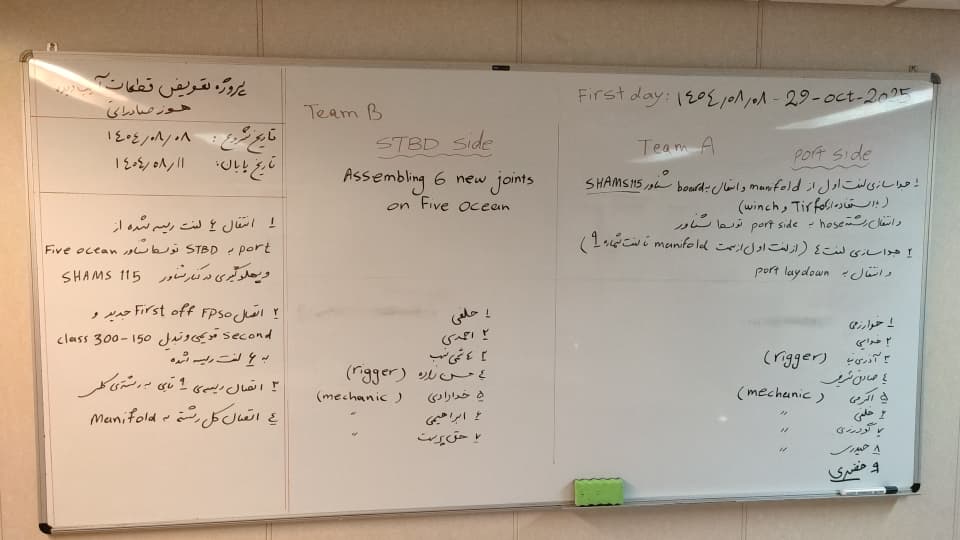 پروژه تعویض قطعات آسیب‌دیده
هوز صادراتی
تاریخ شروع: ۱۴۰۴/۰۸/۰۸
تاریخ پایان: ۱۴۰۴/۰۸/۱۱
۱ انتقال ۶ لنت ریسه شده از
port به STBD توسط شناور Five ocean
و پهلوگیری در کنار شناور SHAMS 115
۲ اتصال First off FPSO جدید و
second قدیمی و تبدیل class 300-150
به ۶ لنت ریسه شده
۳ اتصال ریسه‌ی ۹ تایی به رشته‌ی کلی
۴ اتصال کل رشته به Manifold
Team B
STBD Side
Assembling 6 new joints
on Five Ocean
۱ حلفی
۲ احمدی
۳ هاشمی نسب
۴ حسن زاده (rigger)
۵ خدادادی (mechanic)
۶ ابراهیمی "
۷ حق پرست "
First day: ۱۴۰۴/۰۸/۰۸ - 29-oct-2025
Team A
port side
۱ جداسازی لنت اول از manifold و انتقال به board شناور SHAMS115
(با استفاده از Tirfor و winch)
و انتقال رشته hose به port side توسط شناور
۲ جداسازی لنت ۴ (از لنت اول از سمت manifold تا لنت شماره ۹)
و انتقال به port laydown
۱ خوارزمی
۲
۳ (rigger)
۴ صادق شریفی
۵ اکرمی (mechanic)
۶ خلفی "
۷ گودرزی "
۸ حیدری "
۹ خضری